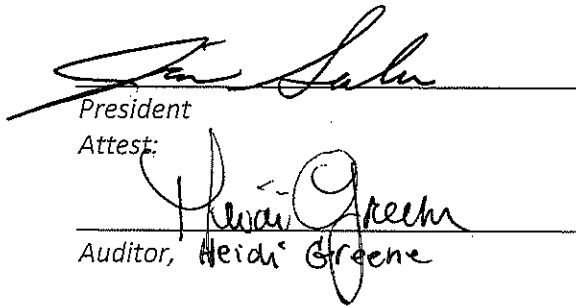 President
Attest:
Heidi Greene
Auditor, Heidi Greene